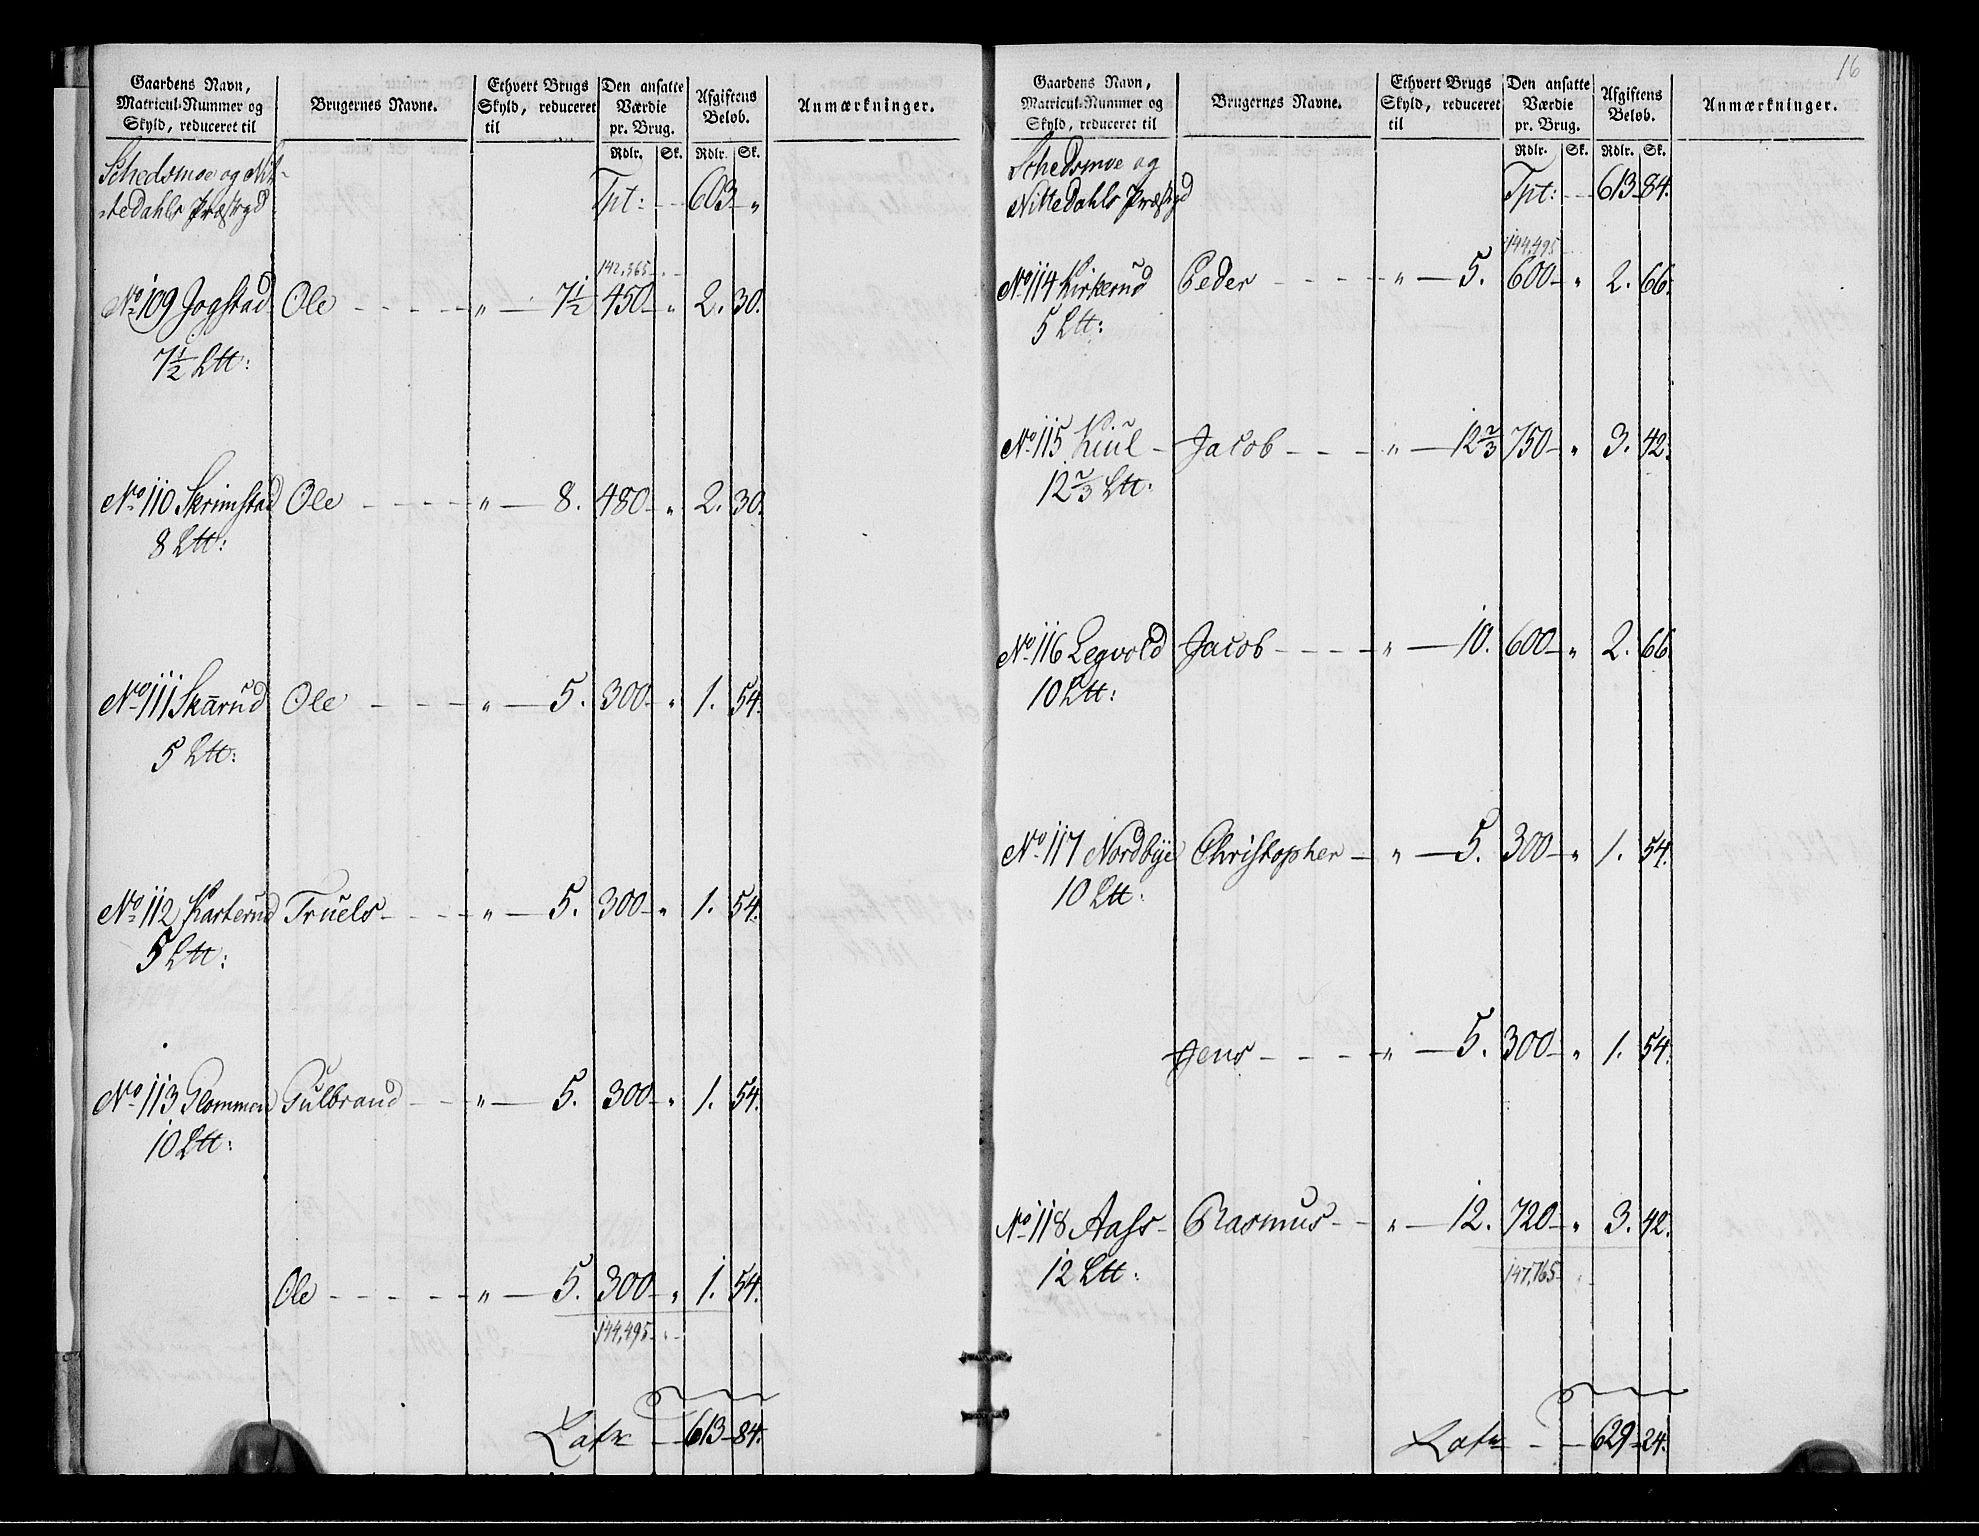 Gaardens Navn, Matricul-Nummer og Skyld, reduceret til | Brugernes Navne. | Ethvert Brugs Skyld, reduceret til | Den ansatte Værdie pr. Brug. | Afgiftens Beløb. | Anmærkninger.
Rdlr. | Sk. | Rdlr. | Sk.
Schedsmoe og Nit-
tedahls Præstgd Tpt: 603 "
142,365
No 109 Jogstad Ole " 7½ 450 " 2. 30.
7½ Ltt:
No 110 Skrimstad Ole " 8. 480 " 2. 30.
8 Ltt:
No 111 Skarud Ole " 5. 300 " 1. 54.
5 Ltt:
No 112 Karterud Truels " 5. 300 " 1. 54.
5 Ltt:
No 113 Glommen Gulbrand " 5. 300 " 1. 54.
10 Ltt:
Ole " 5. 300 " 1. 54.
144,495
Lat 613 84.
16
Gaardens Navn, Matricul-Nummer og Skyld, reduceret til | Brugernes Navne. | Ethvert Brugs Skyld, reduceret til | Den ansatte Værdie pr. Brug. | Afgiftens Beløb. | Anmærkninger.
Rdlr. | Sk. | Rdlr. | Sk.
Schedsmoe og
Nittedahls Præstgd Tpt: 613 84.
144,495
No 114 Kirkerud Peder " 5. 600 " 2. 66.
5 Ltt:
No 115 Kiul Jacob " 12⅔ 750 " 3. 42.
12⅔ Ltt:
No 116 Legvold Jacob " 10. 600 " 2. 66.
10 Ltt:
No 117 Nordbye Christopher " 5. 300 " 1. 54.
10 Ltt:
Jens " 5. 300 " 1. 54.
No 118 Aass Rasmus " 12. 720 " 3. 42.
12 Ltt:
147,765
Lat 629 24.